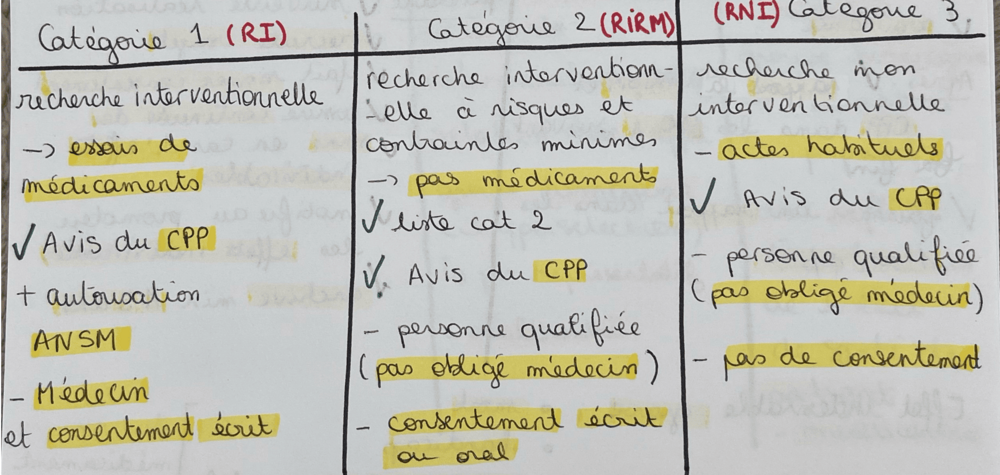 Catégorie 1 (RI)
recherche interventionnelle
-> essais de
médicaments
✓ Avis du CPP
+ autorisation
ANSM
- Médecin
et consentement écrit
Catégorie 2 (RIRM)
recherche intervention-
-elle à risques et
contraintes minimes
-> pas médicaments
✓ liste cat 2
✓ Avis du CPP
- personne qualifiée
(pas obligé médecin)
- consentement écrit
ou oral
(RNI) Catégorie 3
recherche non
interventionnelle
- actes habituels
✓ Avis du CPP
- personne qualifiée
(pas obligé médecin)
- pas de consentement